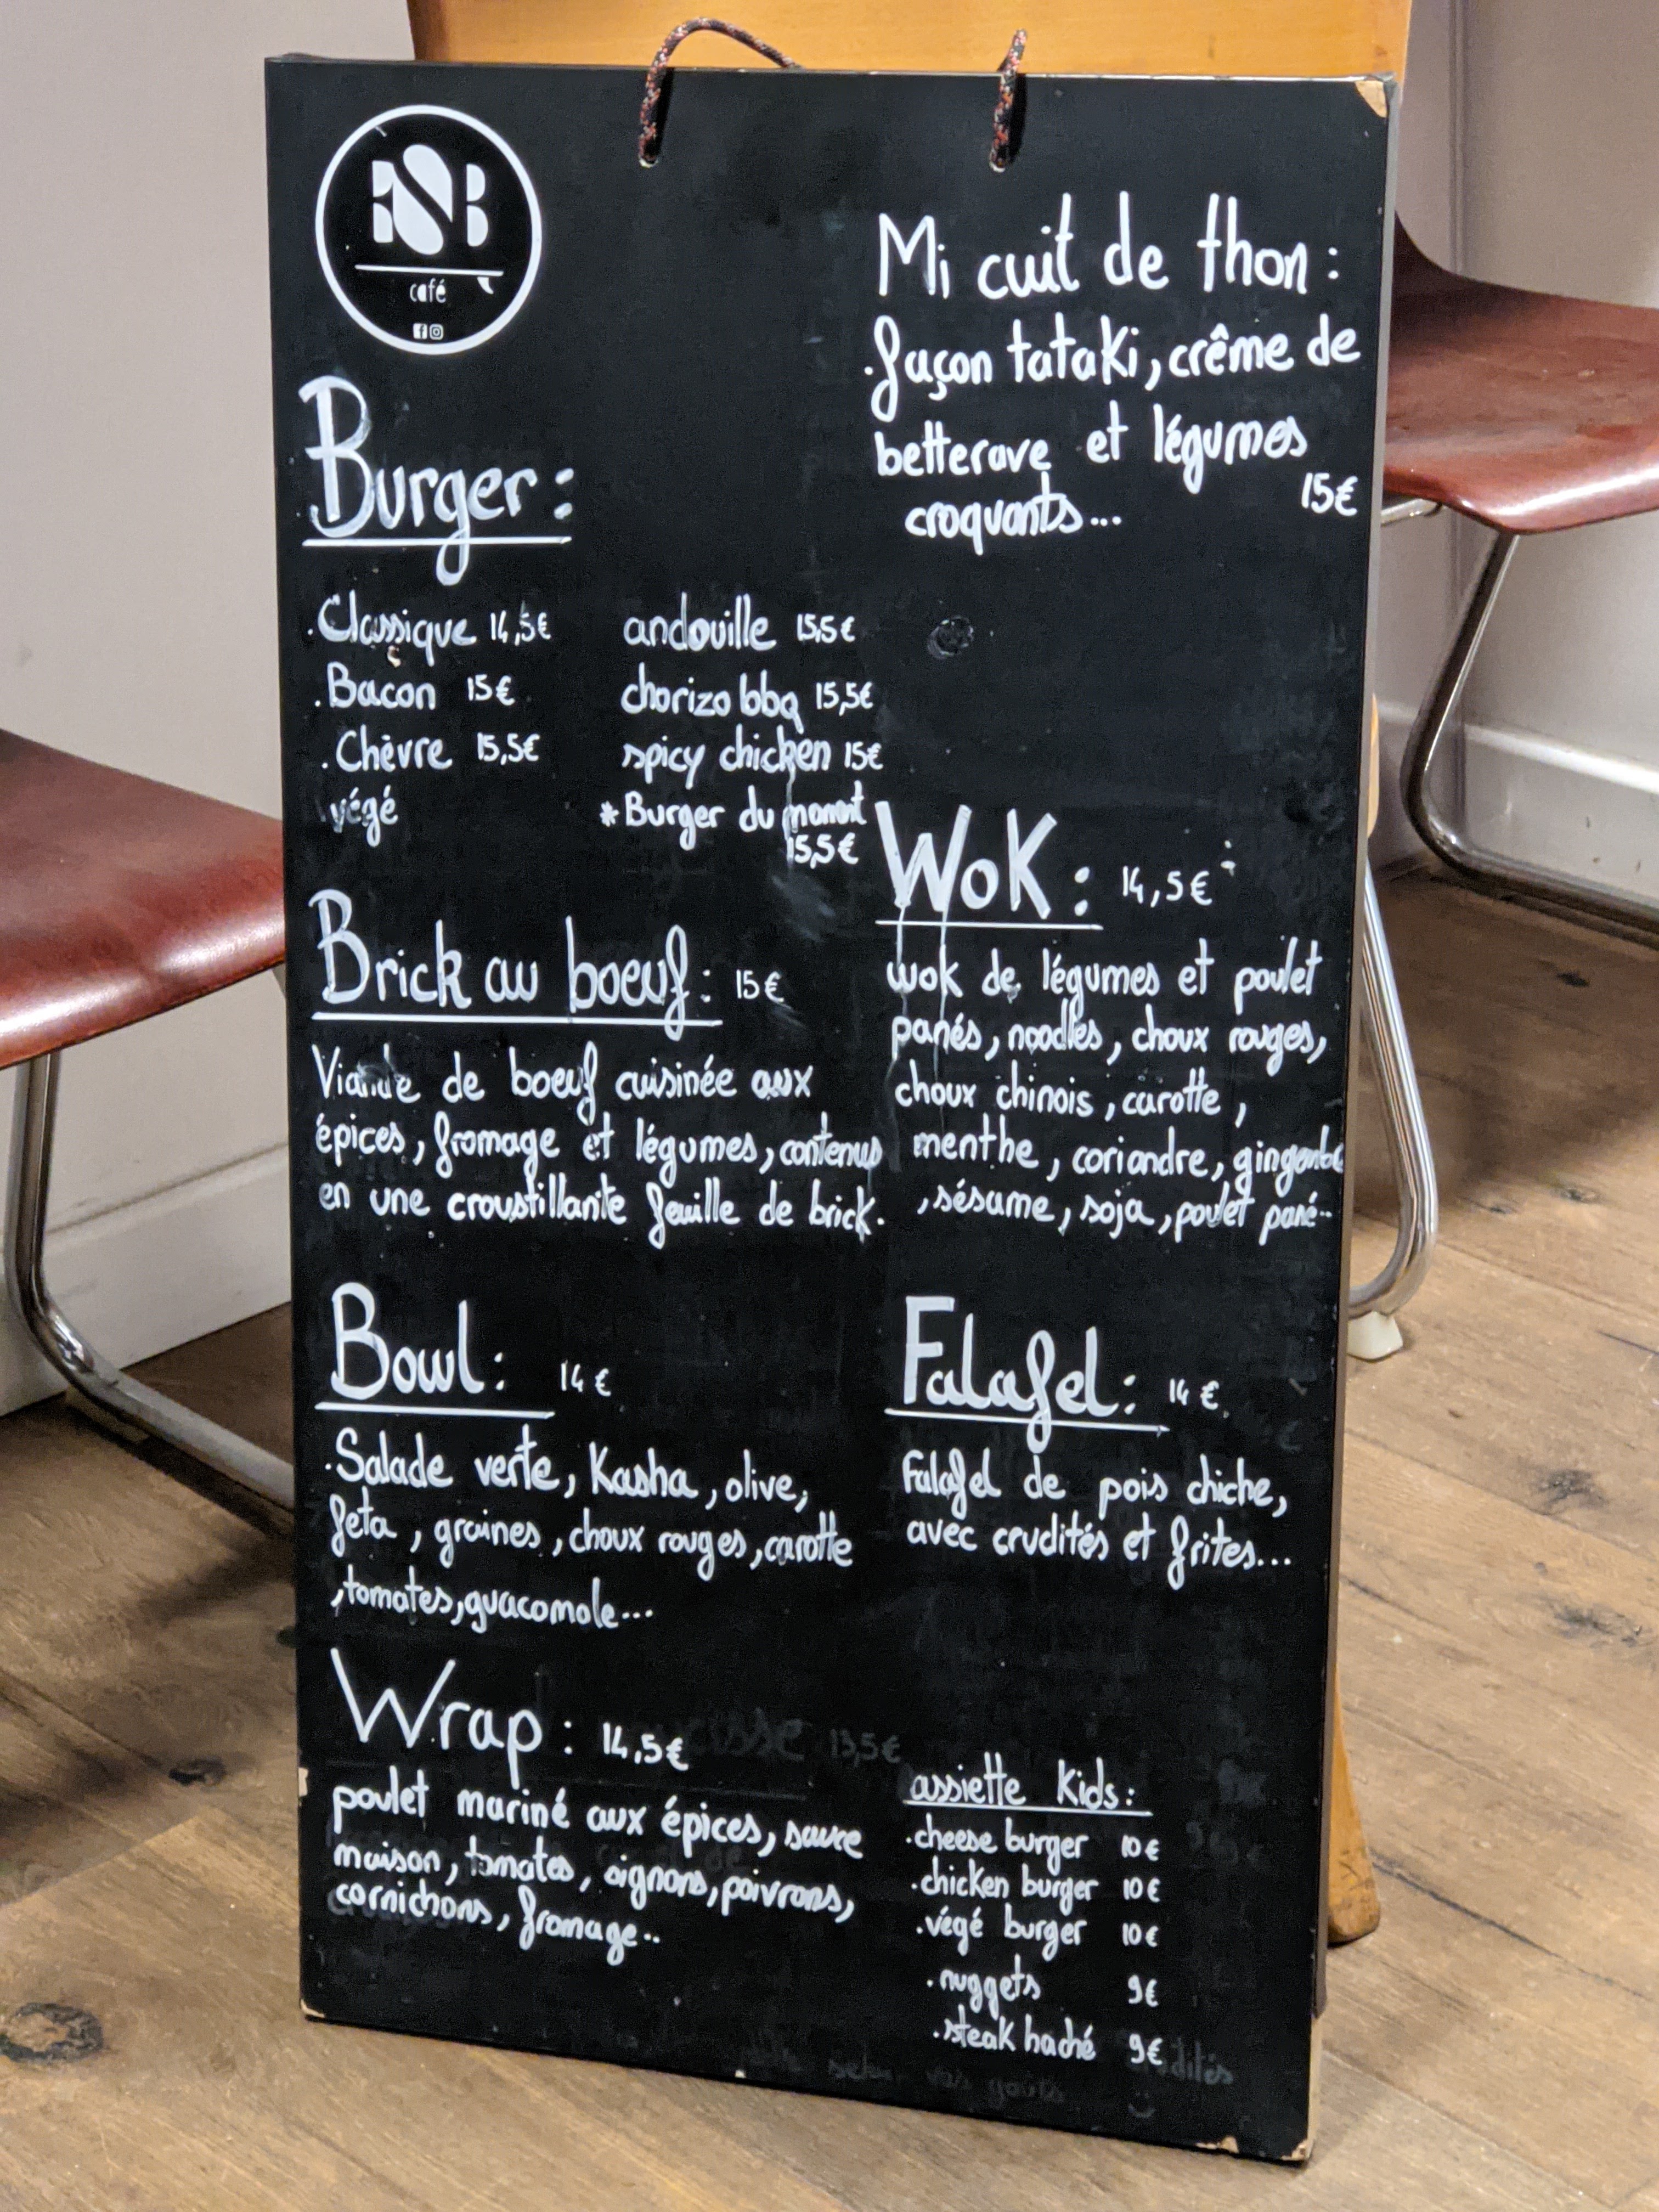 café
Mi cuit de thon :
.façon tataki, crême de
betterave et légumes
croquants...
15€
Burger :
.Classique 14,5€
.Bacon 15€
.Chèvre 15,5€
végé
andouille 15,5€
chorizo bbq 15,5€
spicy chicken 15€
*Burger du moment
15,5€
Brick au boeuf : 15€
Viande de boeuf cuisinée aux
épices, fromage et légumes, contenus
en une croustillante feuille de brick.
Wok : 14,5€
wok de légumes et poulet
panés, noodles, choux rouges,
choux chinois, carotte,
menthe, coriandre, gingembre
, sésame, soja, poulet pané..
Bowl : 14€
.Salade verte, Kasha, olive,
feta, graines, choux rouges, carotte
, tomates, guacomole...
Falafel : 14€
Falafel de pois chiche,
avec crudités et frites...
Wrap : 14,5€
13,5€
poulet mariné aux épices, sauce
maison, tomates, oignons, poivrons,
cornichons, fromage..
assiette Kids :
.cheese burger 10€
.chicken burger 10€
.végé burger 10€
.nuggets 9€
.steak haché 9€
selon vos goûts